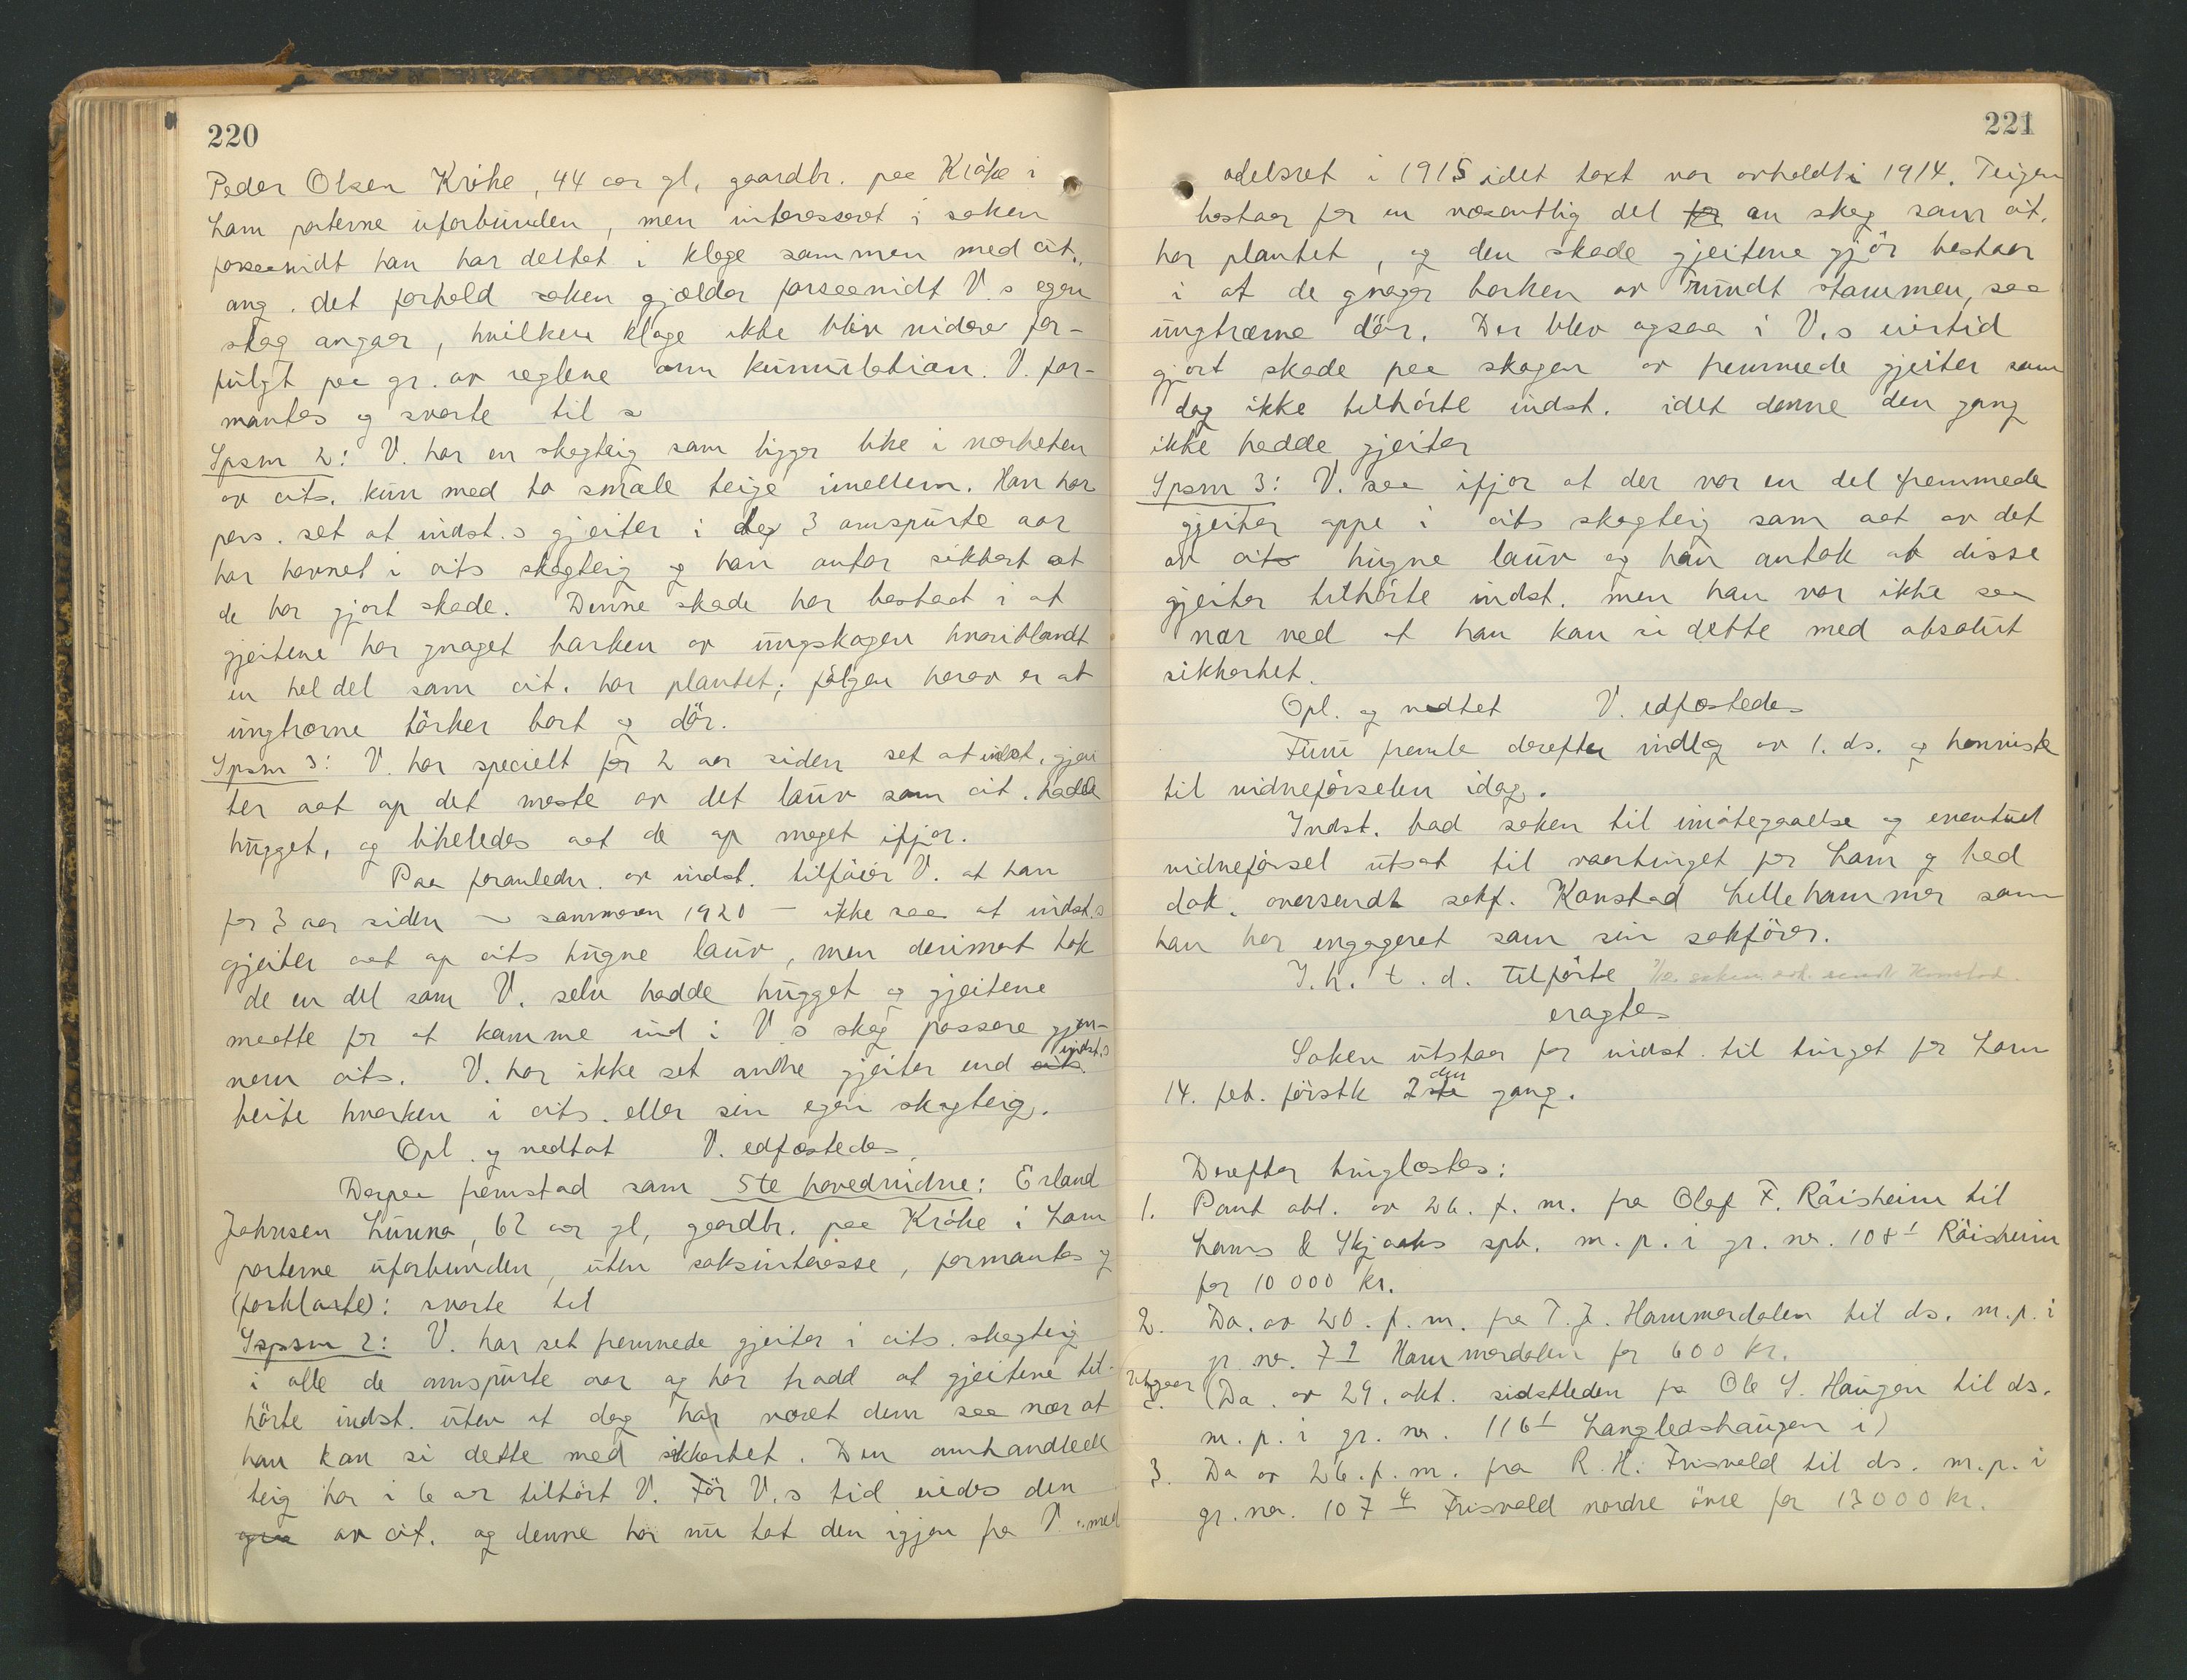 220
Peder Olsen Kröke, 44 aar gl, gaardbr. paa Kröke i
Lom parterne uforbunden, men interesseret i saken
forsaavidt han har deltat i klage sammen med cit.,
ang. det forhold saken gjælder forsaavidt V.s egen
skog angaar, hvilken klage ikke blev videre for-
fulgt paa gr. av reglene om kumulation. V. for-
mantes og svarte til
Spsm 2: V. har en skogteig som ligger like i nærheten
av cits. kun med to smale teige imellem. Han har
pers. set at indst.s gjeiter i de 3 omspurte aar
har havnet i cits skogteig og han antar sikkert at
de har gjort skade. Denne skade har bestaat i at
gjeitene har gnaget barken av ungskogen hvoriblandt
en hel del som cit. har plantet; følgen herav er at
ungtrærne törker bort og dör.
Spsm 3: V. har specielt for 2 aar siden set at indst. gjei
ter aat op det meste av det lauv som cit. hadde
hugget, og likeledes aat de op meget ifjor.
Paa foranledn. av indst. tilföier V. at han
for 3 aar siden – sommeren 1920 – ikke saa at indst.s
gjeiter aat op cits hugne lauv, men derimot tok
de en del som V. selv hadde hugget og gjeitene
maatte for at komme ind i V.s skog passere gjen-
nem cits. V. har ikke set andre gjeiter end cits indst.s
beite hverken i cits. eller sin egen skogteig.
Opl. og vedtat V. edfæstedes.
Derpaa fremstod som 5te hovedvidne: Erland
Johnsen Lunna, 62 aar gl, gaardbr. paa Kröke i Lom
parterne uforbunden, uten saksinteresse, formantes og
(forklarte): svarte til
Spsm 2: V. har set fremmede gjeiter i cits. skogteig
i alle de omspurte aar og har trodd at gjeitene til-
hörte indst. uten at dog har været dem saa nær at
han kan si dette med sikkerhet. Den omhandlede
teig har i 6 aar tilhört V. För V.s tid eiedes den
av cit. og denne har nu tat den igjen fra V. med
221
odelsret i 1915 idet taxt var avholdt i 1914. Teigen
bestaar for en væsentlig del for en skog som cit.
har plantet, og den skade gjeitene gjör bestaar
i at de gnager barken av rundt stammen, saa
ungtrærne dör. Der blev ogsaa i V.s eiertid
gjort skade paa skogen av fremmede gjeiter som
dog ikke tilhörte indst. idet denne den gang
ikke hadde gjeiter
Spsm 3: V. saa ifjor at der var en del fremmede
gjeiter oppe i cits skogteig som aat av det
av cits hugne lauv og han antok at disse
gjeiter tilhörte indst. men han var ikke saa
nær ved at han kan si dette med absolut
sikkerhet.
Opl. og vedtat V. edfæstedes
Furu fremla derefter indlæg av 1. ds. og henviste
til vidneförselen idag.
Indst. bad saken til imötegaaelse og eventuel
vidneförsel utsat til vaartinget for Lom og bad
dok. oversendt sakf. Konstad Lillehammer som
han har engageret som sin sakförer.
I. h. t. d. tilförte
eragtes
Saken utstaar for indst. til tinget for Lom
14. feb. förstk 2ste den gang.
Derefter tinglæstes:
1. Pant obl. av 26. f. m. fra Olaf F. Räisheim til
Loms & Skjaaks spb. m. p. i gr. nr. 108¹ Räisheim
for 10 000 kr.
2. Do. av 20. f. m. fra T. J. Hammerdalen til ds. m. p. i
gr. nr. 7 1 Hammerdalen for 600 kr.
Utgaar (Do. av 29. okt. sidstleden fra Ole S. Haugen til ds.
m. p. i gr. nr. 116¹ Langledshaugen i)
3. Do av 26. f. m. fra R. H. Frisvold til ds. m. p. i
gr. nr. 107 4 Frisvold nordre övre for 13000 kr.